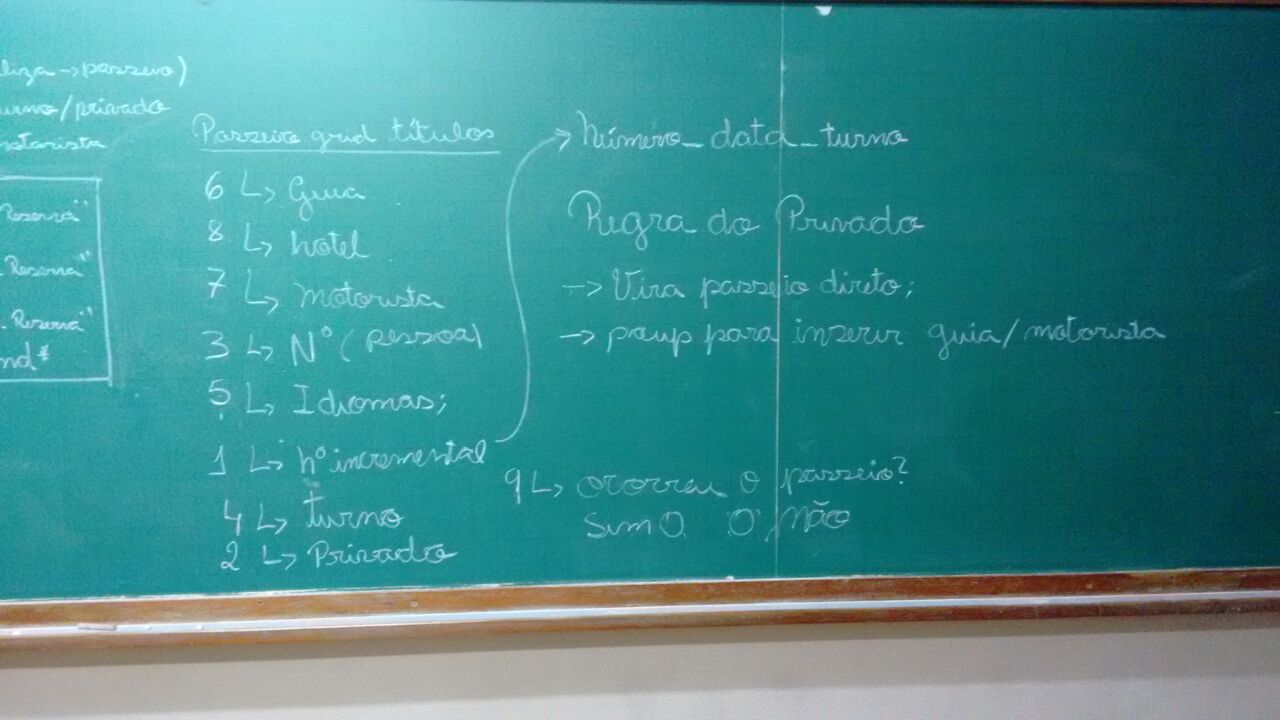 liza → passeio)
urno/privado
motorista
Reserva"
. Reserva"
. Reserva"
nd*
Passeio grid títulos
6 ↳ Guia
8 ↳ hotel
7 ↳ motorista
3 ↳ Nº (pessoa)
5 ↳ Idiomas;
1 ↳ nº incremental
4 ↳ turno
2 ↳ Privado
→ Número_data_turno
Regra do Privado
→ Vira passeio direto;
→ para inserir guia/motorista
9 ↳ ocorreu o passeio?
Sim O O Não